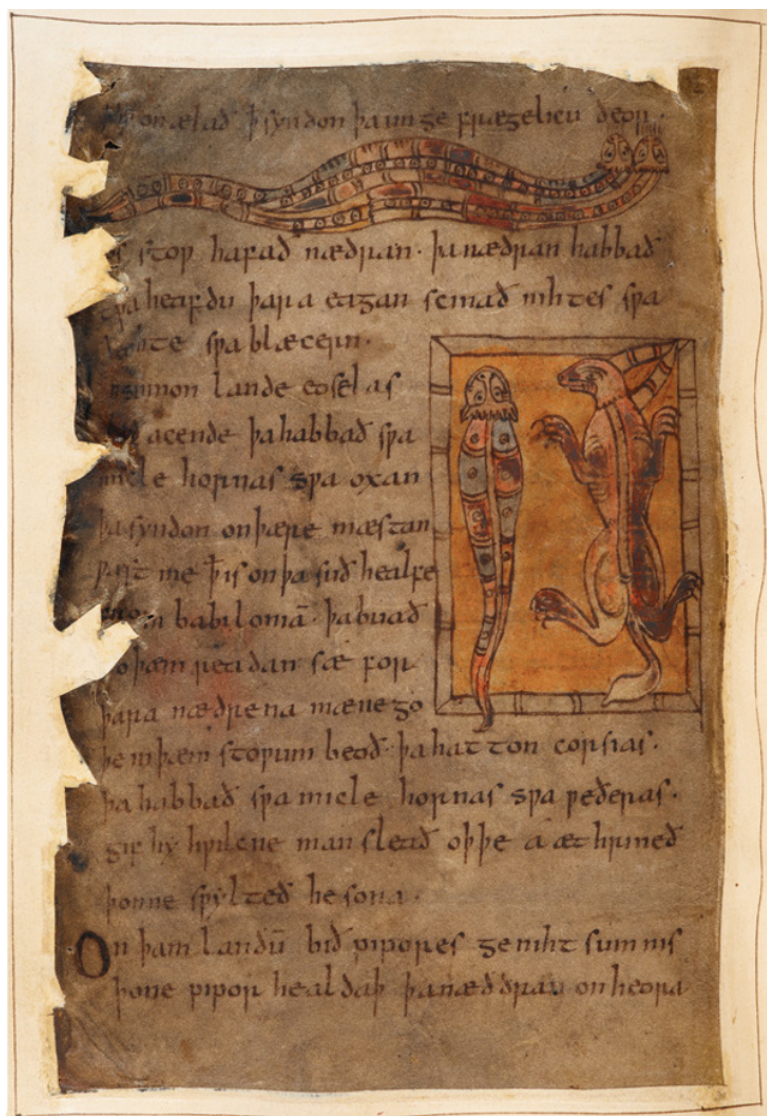 onælað ꝥ syndon þa ungefrægelicu deor.
stoƿ hafað nædran. þa nædran habbað
tƿa heafdu þara eagan scinað nihtes sƿa
sƿa blæcern.
sumon lande eoselas
acende þa habbað sƿa
micle hornas sƿa oxan
þa syndon on þære mæstan
ꝥ is on þa suð healfe
babiloniā. þa buað
to þæm readan sæ for
þara nædrena mænego
þe in þæm stoƿum beoð. þa hatton corsias.
þa habbað sƿa micle hornas sƿa ƿeðeras.
gif hy hƿilcne man sleað oþþe a æthrineð
þonne sƿylteð he sona.
On þam landū bið pipores genihtsumnis
þone pipor healdaþ þa næddran on heora